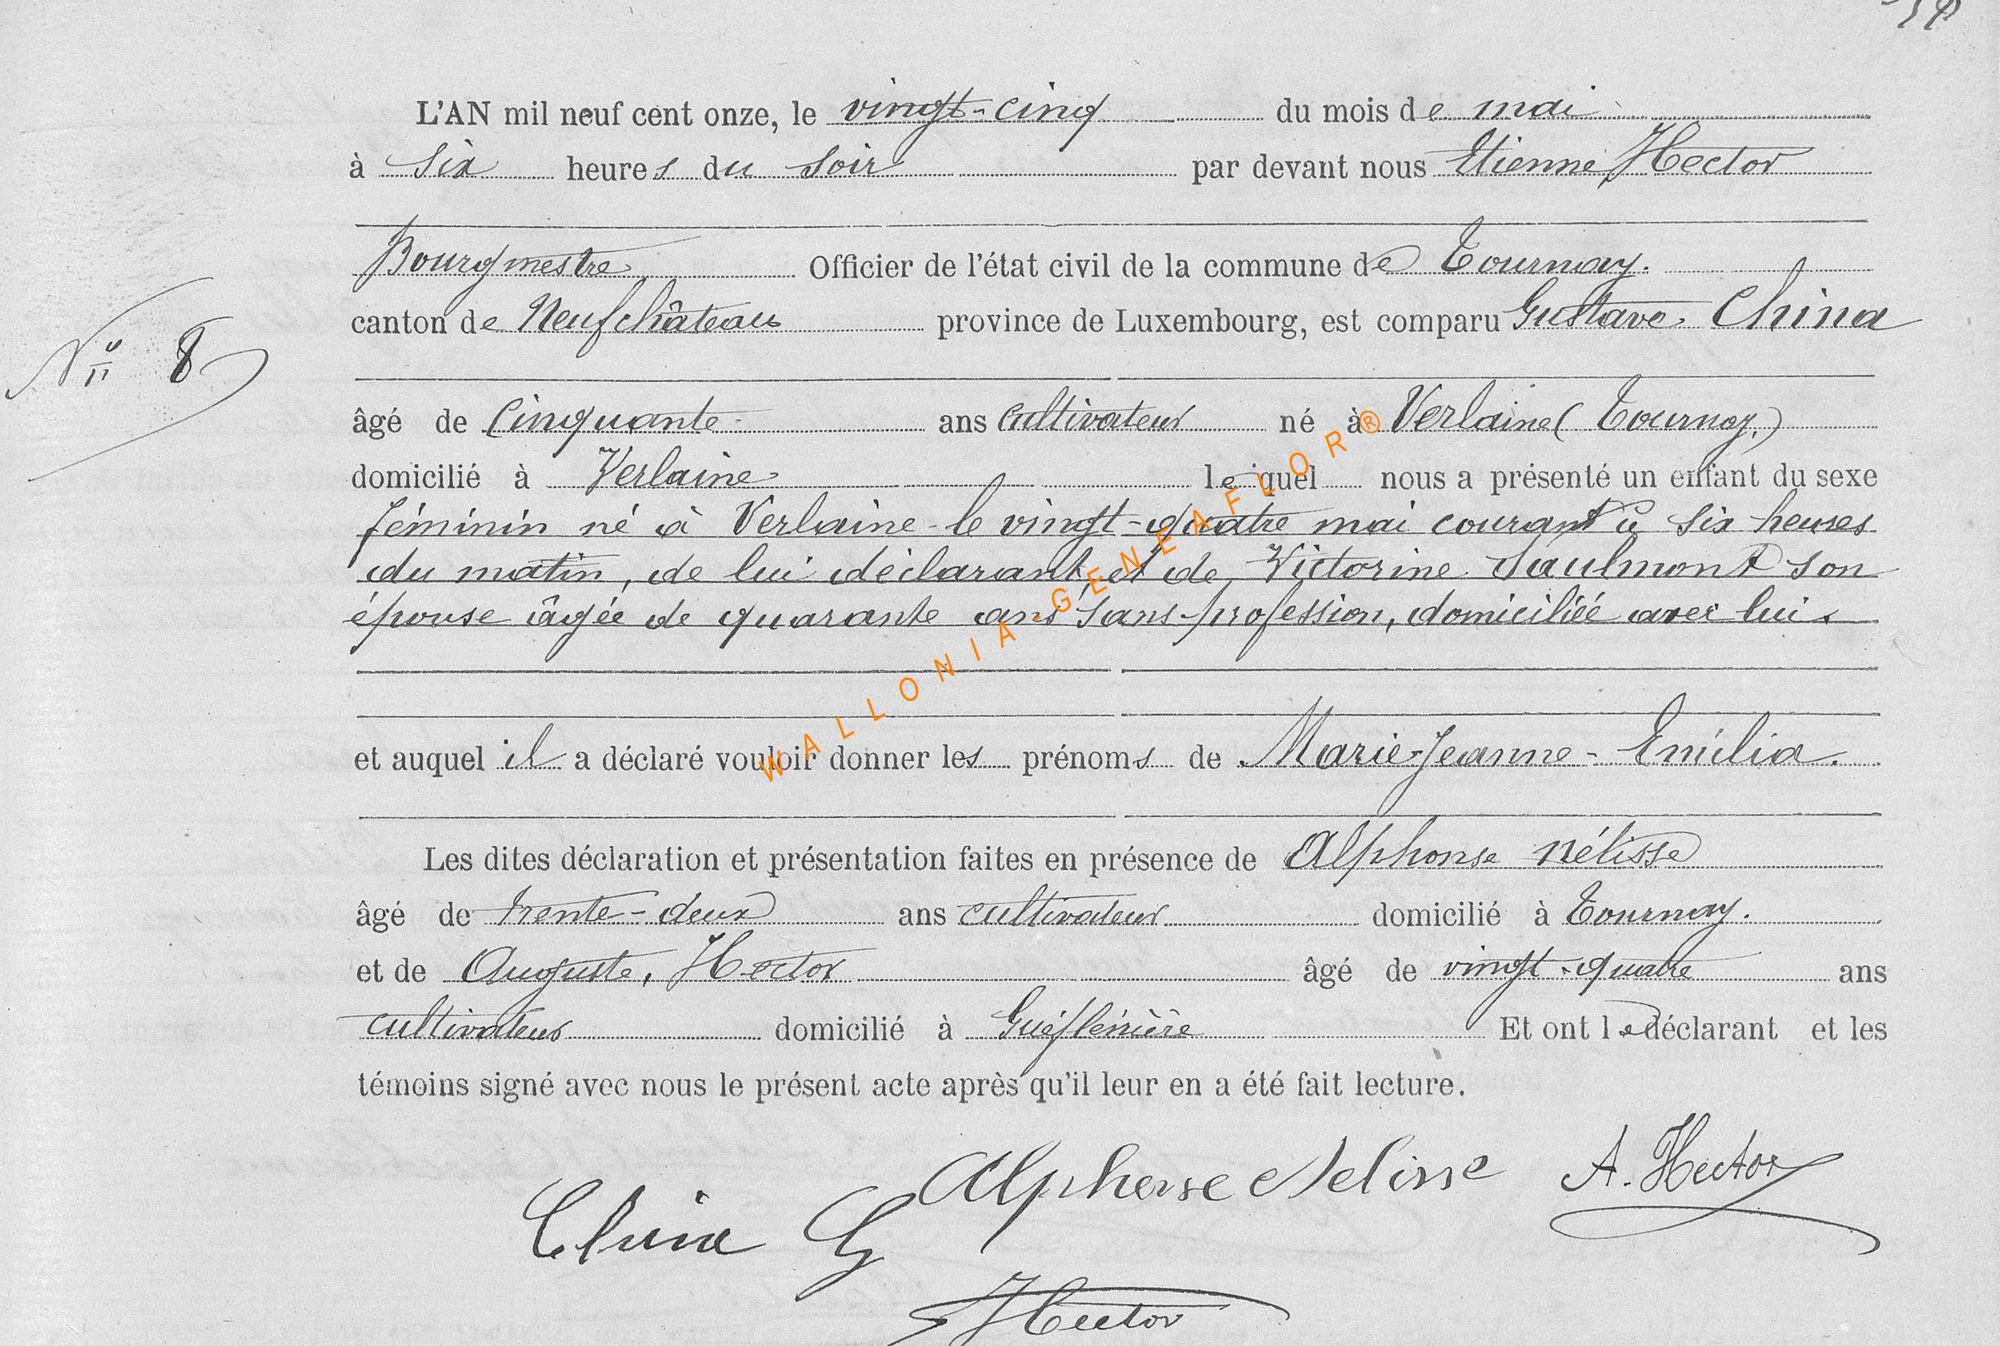 L'AN mil neuf cent onze, le vingt-cinq du mois de mai
à six heures du soir par devant nous Etienne, Hector
Bourgmestre Officier de l'état civil de la commune de Tournay.
canton de Neufchâteau province de Luxembourg, est comparu Gustave China
N° 8
âgé de cinquante ans cultivateur né à Verlaine (Tournay.)
domicilié à Verlaine lequel nous a présenté un enfant du sexe
féminin né à Verlaine le vingt-quatre mai courant à six heures
du matin, de lui déclarant et de Victorine Saulmont son
épouse âgée de quarante ans sans profession, domiciliée avec lui.
WALLONIA GENEAFLOR®
et auquel il a déclaré vouloir donner les prénoms de Marie-Jeanne-Emilia.
Les dites déclaration et présentation faites en présence de Alphonse Nélisse
âgé de trente-deux ans cultivateur domicilié à Tournay.
et de Auguste, Hector âgé de vingt-quatre ans
cultivateur domicilié à Et ont le déclarant et les
témoins signé avec nous le présent acte après qu'il leur en a été fait lecture.
Alphonse Nelisse A. Hector
China G
Hector